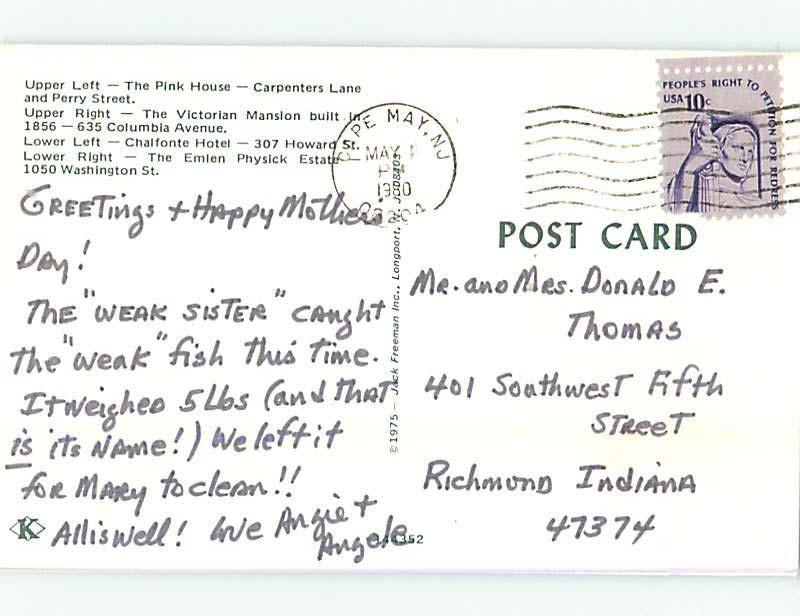 Upper Left — The Pink House — Carpenters Lane
and Perry Street.
Upper Right — The Victorian Mansion built in
1856 — 635 Columbia Avenue.
Lower Left — Chalfonte Hotel — 307 Howard St.
Lower Right — The Emlen Physick Estate —
1050 Washington St.
GREETings + Happy Mothers
DAy!
THE "WEAK SiSTER" caught
the "weak" fish this time.
It weighed 5 Lbs (and THAT
is its NAME!) We left it
for MARY to clean!!
All is well! Love Angie +
Angele
K
©1975 — Jack Freeman Inc., Longport, N. J. 08403
144352
CAPE MAY, NJ
MAY
PM
1980
08204
PEOPLE'S RIGHT TO PETITION FOR REDRESS
USA 10c
POST CARD
MR. and MRS. DONALD E.
THOMAS
401 SouthwesT Fifth
STREET
RichmonD IndiANA
47374